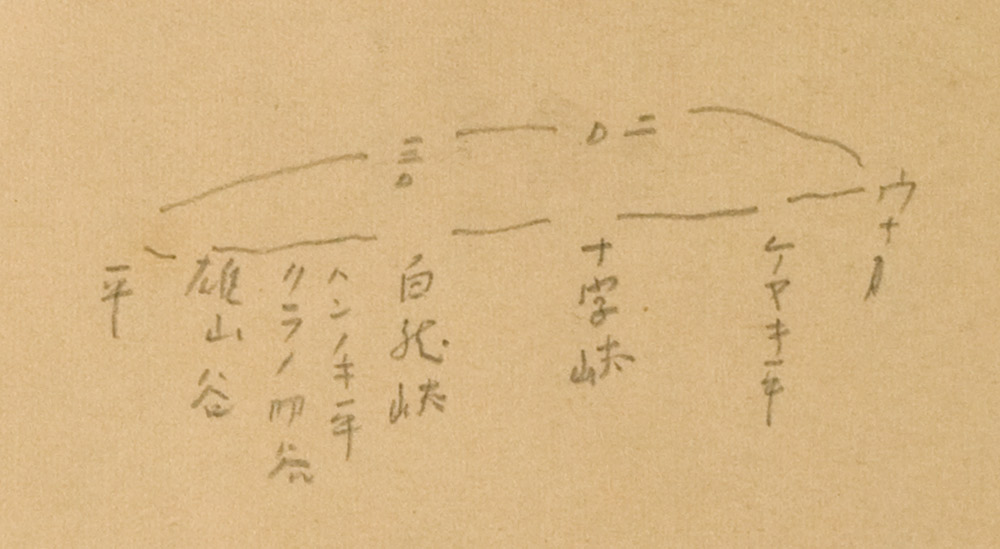 ウナ月
二〇
三〇
ケヤキ平
十字峡
白竜峡
ハンノキ平
クラノ助谷
雄山谷
平